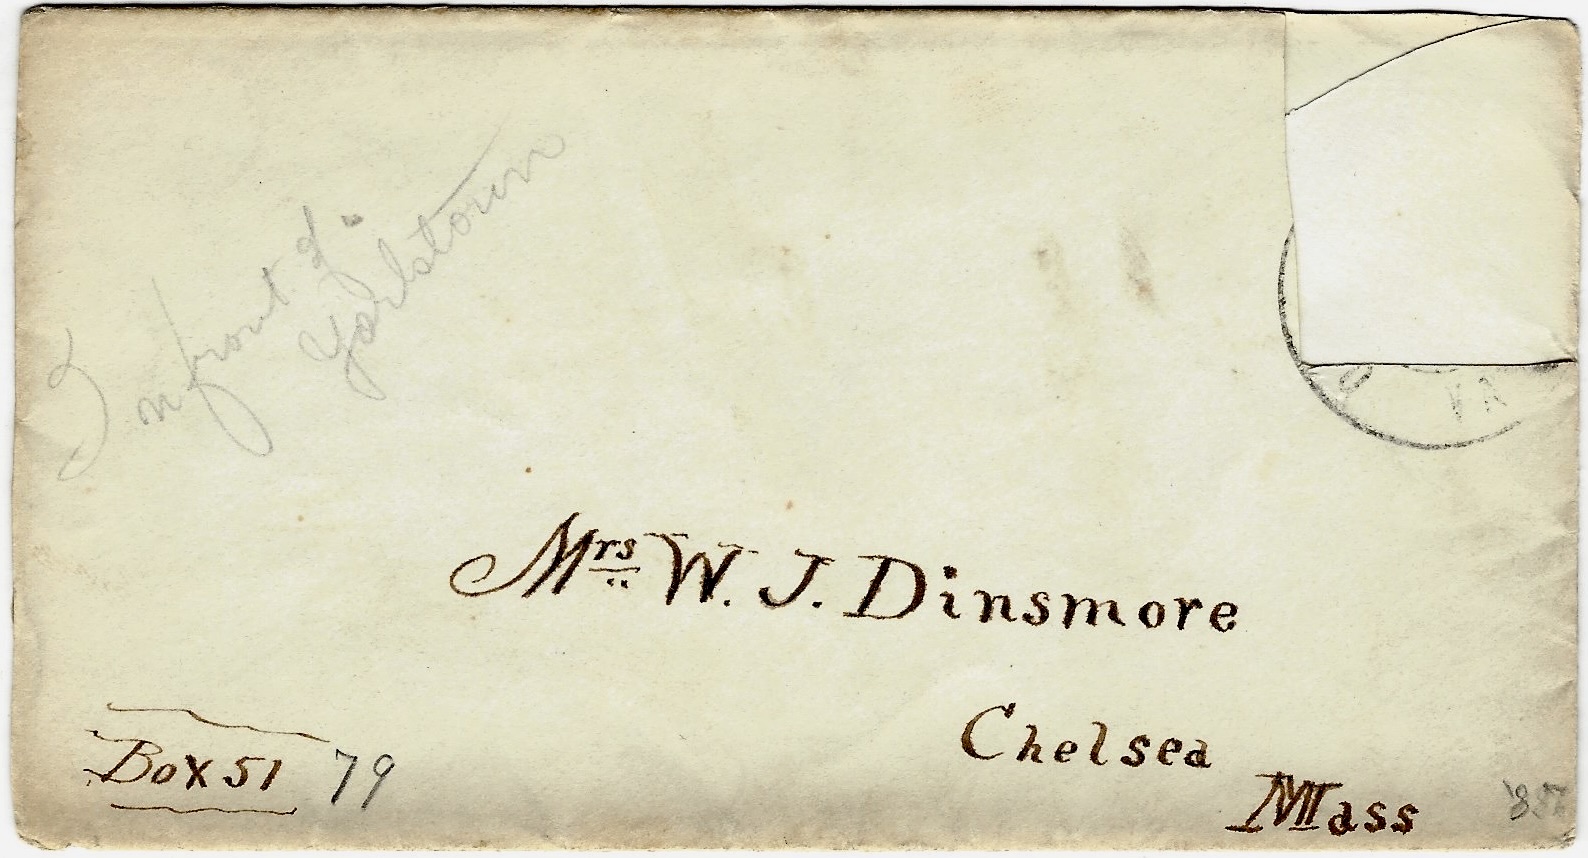 In front of
Yorktown
VA
Mrs W. J. Dinsmore
Chelsea
Mass
Box 51 79